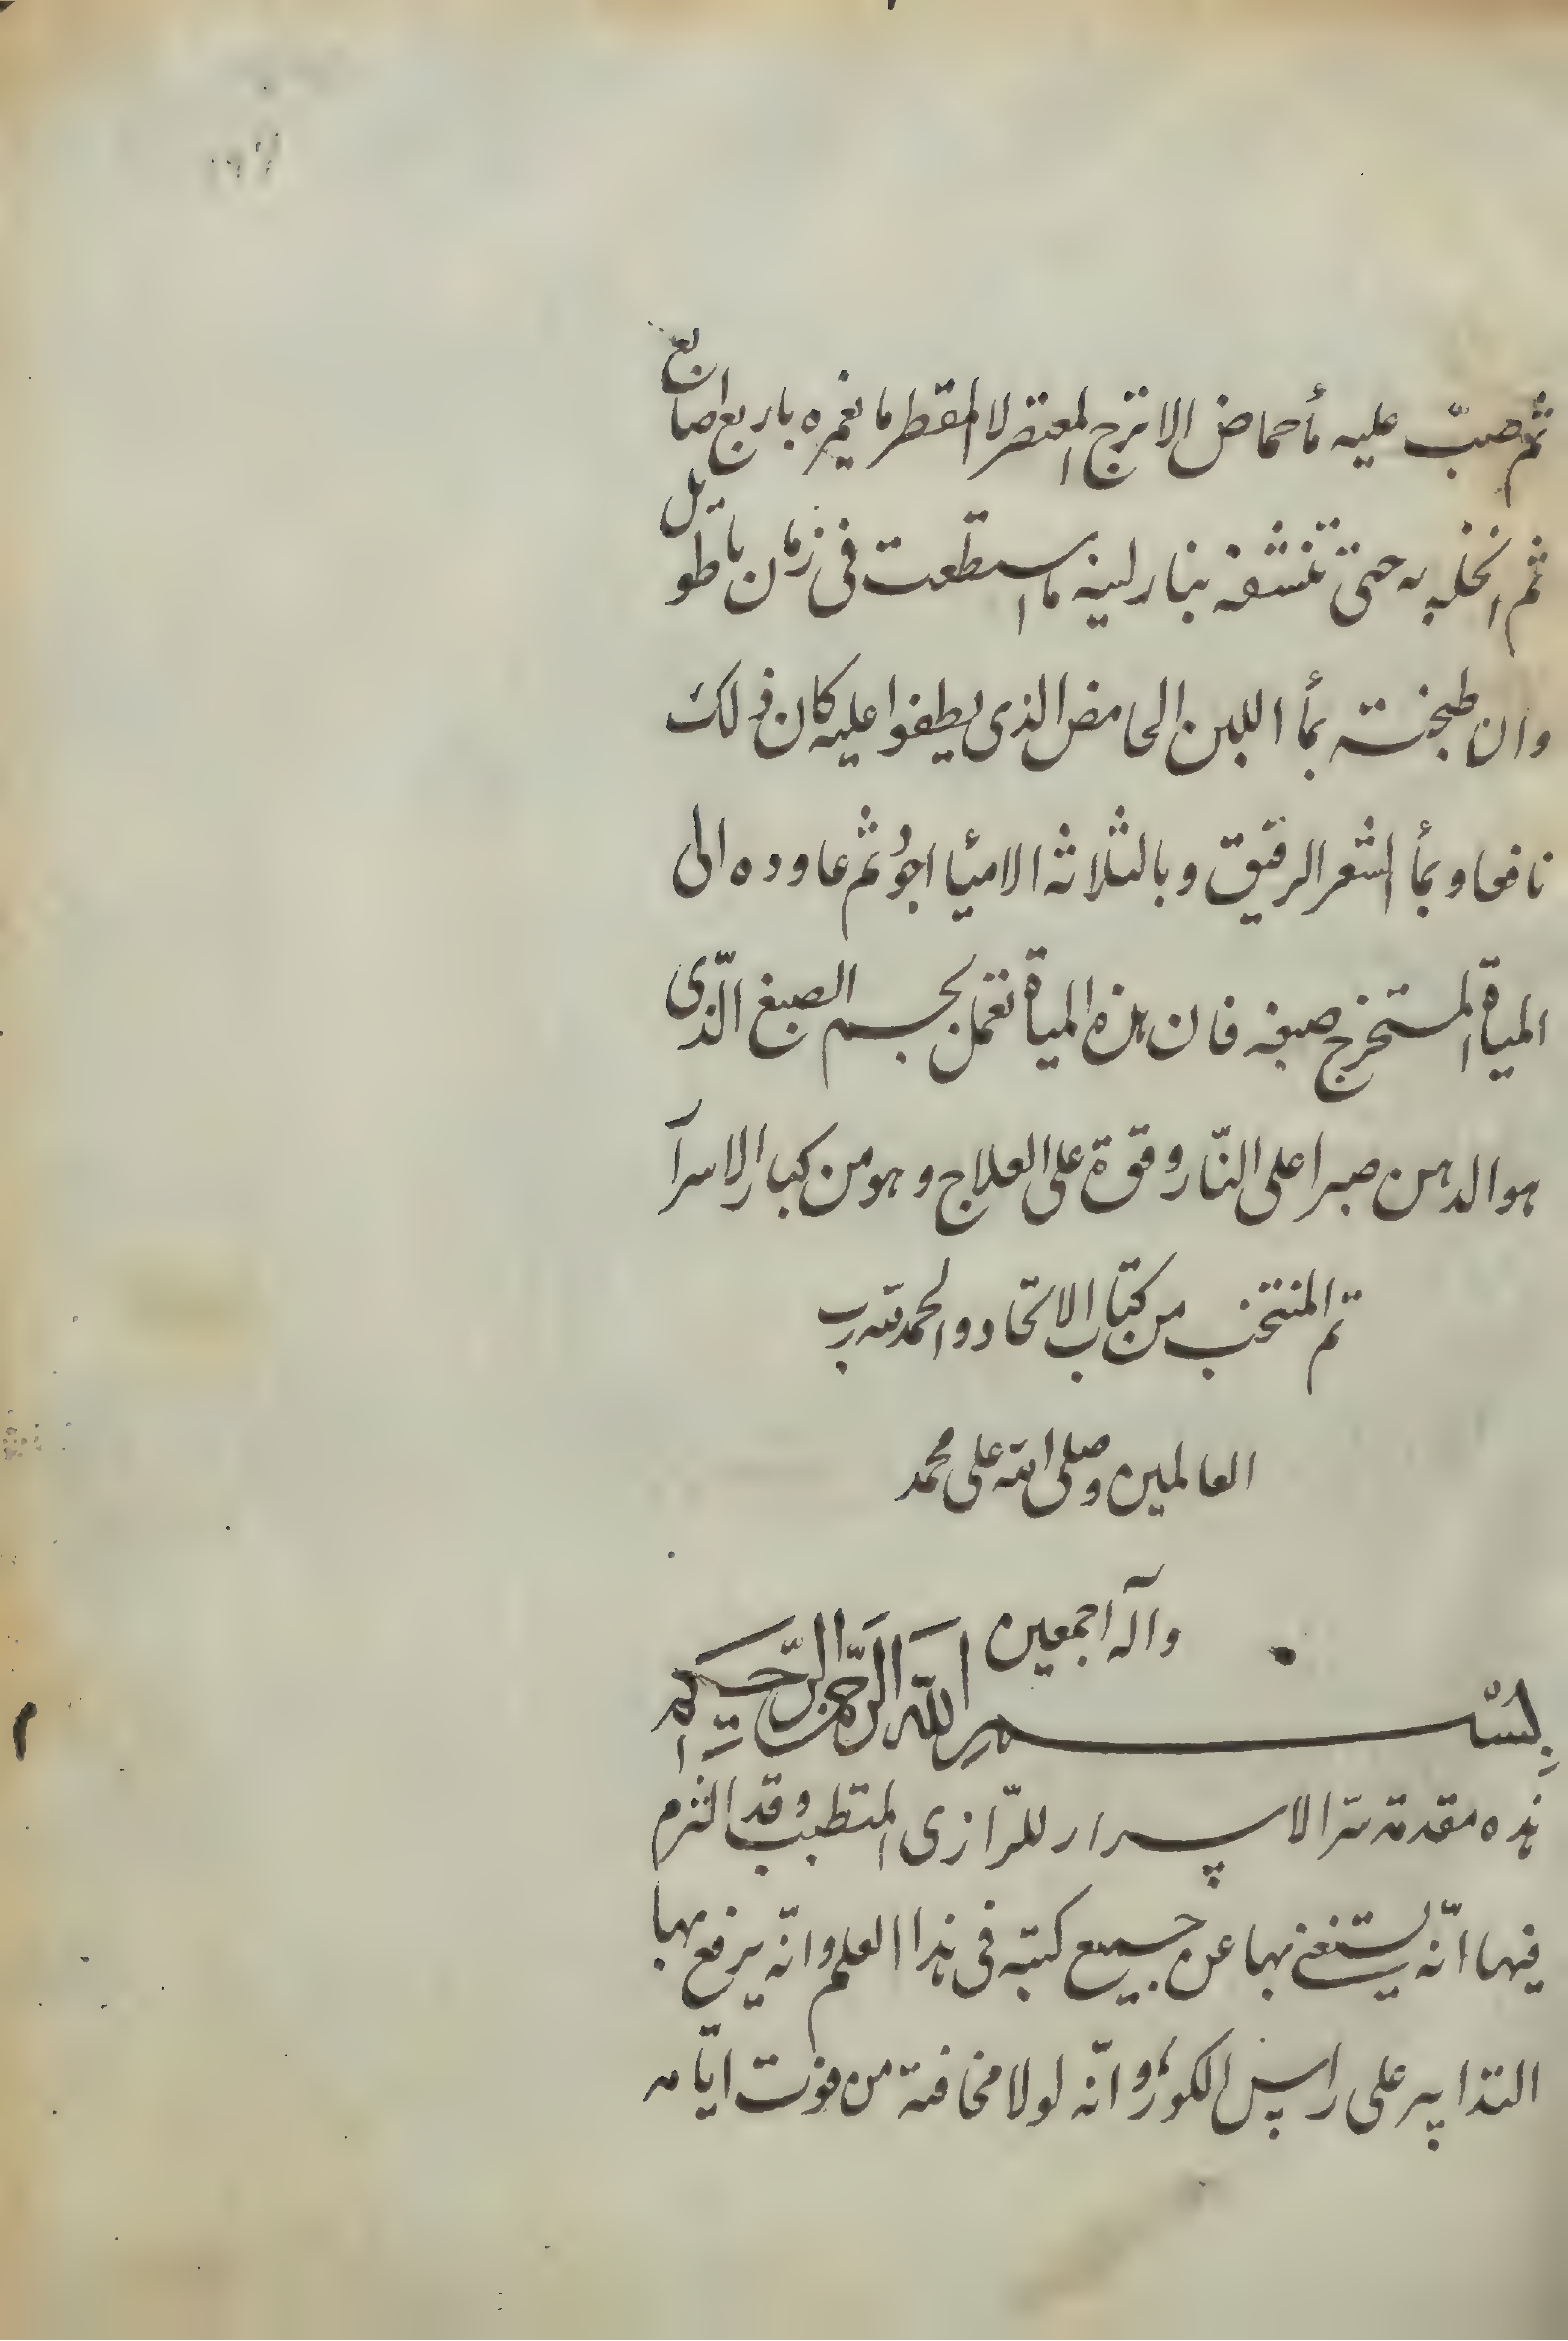 ثم صبّ عليه مأ حماض الاترج المعتصر لا المقطر ما يغمره باربع اصابع
ثم انخله به حتى تنشفه بنار لينه ما استطعت فى زمان ما طويل
وان طبخته بمأ اللبن الحامض الذى يطفوا عليه كان ذلك
نافعا وبمأ الشعر الرقيق وبالثلاثه الاميا اجود ثم عاوده الى
المياة المستخرج صبغه فان هذه المياة تعمل لجسم الصبغ الّذى
هو الدهن صبرا على النّار وقوة على العلاج وهو من كبار الاسرار
تم المنتخب من كتاب الاتحاد والحمد لله رب
العالمين وصلى الله على محمد
وآله اجمعين
بِسْمِ اللَّهِ الرَّحْمَنِ الرَّحِيمِ
هذه مقدمة سرّ الاسرار للرّازى المتطبب وقد التزم
فيها انّه يستغنى بها عن جميع كتبه فى هذا العلم وانّه يرفع بها
التدابير على راس الكور وانّه لولا مخافة من فوت ايّامه